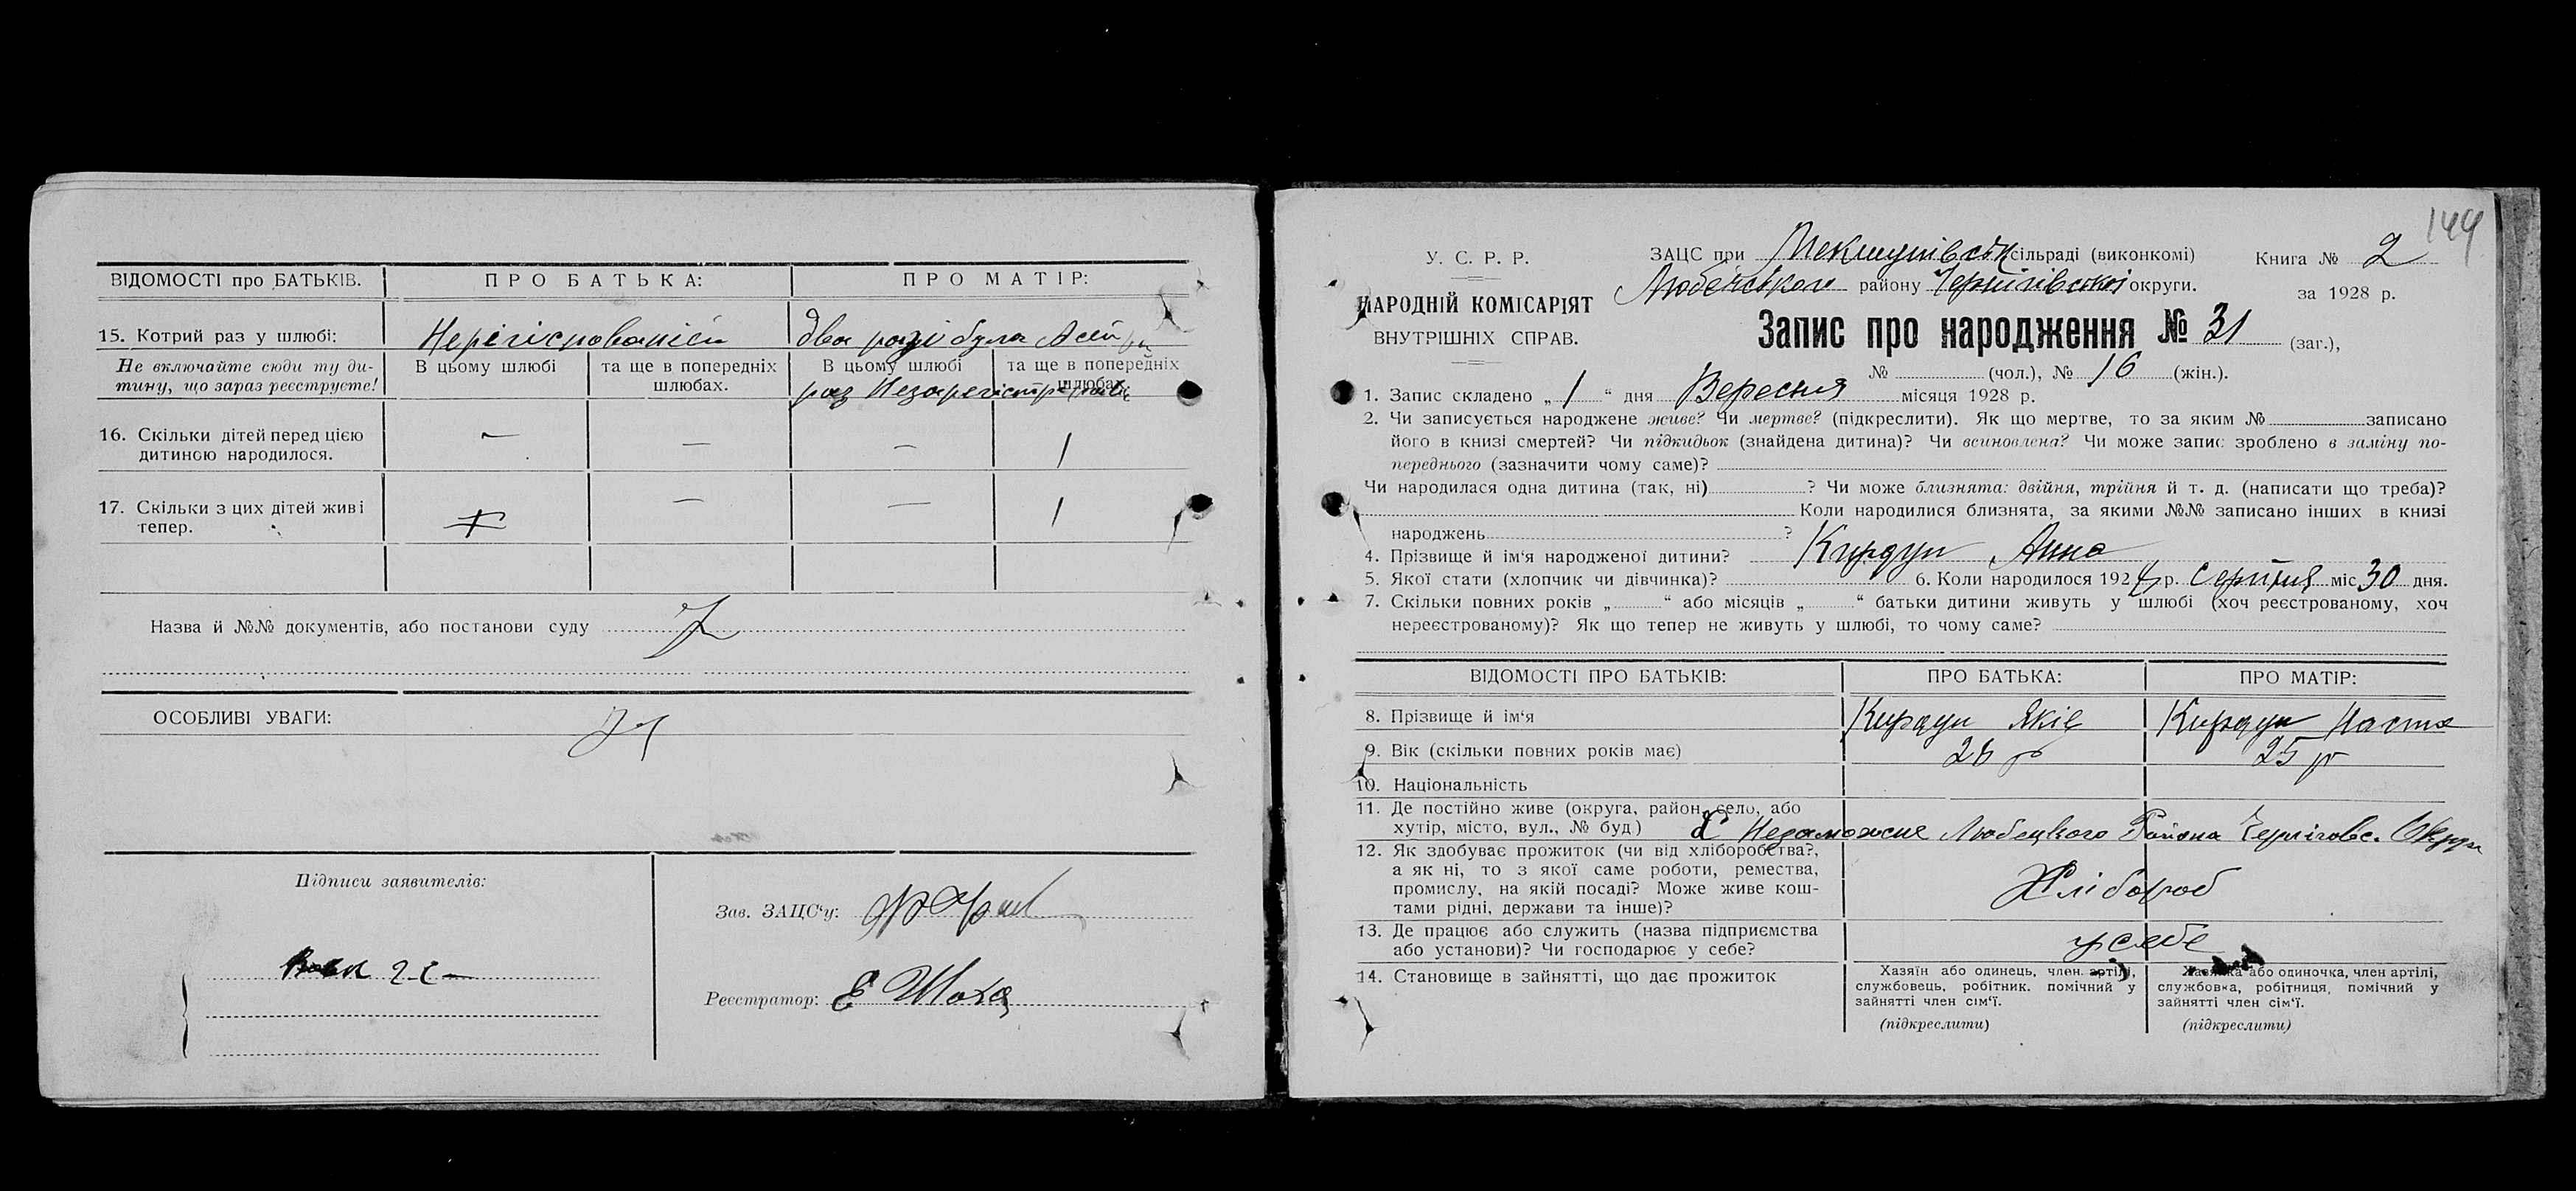 ВІДОМОСТІ про БАТЬКІВ.
ПРО БАТЬКА:
ПРО МАТІР:
15. Котрий раз у шлюбі:
два разі була
Не включайте сюди ту ди-
тину, що зараз реєструєте!
В цьому шлюбі
та ще в попередніх
шлюбах.
В цьому шлюбі
та ще в попередніх
шлюбах
раз
16. Скільки дітей перед цією
дитиною народилося.
—
—
—
1
17. Скільки з цих дітей живі
тепер.
—
—
1
Назва й №№ документів, або постанови суду
ОСОБЛИВІ УВАГИ:
Підписи заявителів:
Зав. ЗАЦС‘у:
Реєстратор: Е
144
У. С. Р. Р.
НАРОДНІЙ КОМІСАРІЯТ
ВНУТРІШНІХ СПРАВ.
ЗАЦС при сільраді (виконкомі)
Любецького району Чернігівської округи.
Книга № 2
за 1928 р.
Запис про народження № 31 (заг.),
№ (чол.), № 16 (жін.).
1. Запис складено „ 1 “ дня Вересня місяця 1928 р.
2. Чи записується народжене живе? Чи мертве? (підкреслити). Як що мертве, то за яким № записано
його в книзі смертей? Чи підкидьок (знайдена дитина)? Чи всиновлена? Чи може запис зроблено в заміну по-
переднього (зазначити чому саме)?
Чи народилася одна дитина (так, ні) ? Чи може близнята: двійня, трійня й т. д. (написати що треба)?
Коли народилися близнята, за якими №№ записано інших в книзі
народжень ?
4. Прізвище й ім‘я народженої дитини? Кирдун Анна
5. Якої стати (хлопчик чи дівчинка)? 6. Коли народилося 192 р. Серпня міс 30 дня.
7. Скільки повних років „ “ або місяців „ “ батьки дитини живуть у шлюбі (хоч реєстрованому, хоч
нереєстрованому)? Як що тепер не живуть у шлюбі, то чому саме?
ВІДОМОСТІ ПРО БАТЬКІВ:
ПРО БАТЬКА:
ПРО МАТІР:
8. Прізвище й ім‘я
Кирдун Яків
Кирдун Настя
9. Вік (скільки повних років має)
25 р
10. Національність
11. Де постійно живе (округа, район, село, або
хутір, місто, вул., № буд)
Любецкого Района Округи
12. Як здобуває прожиток (чи від хліборобства?,
а як ні, то з якої саме роботи, ремества,
промислу, на якій посаді? Може живе кош-
тами рідні, держави та інше)?
Хлібороб
13. Де працює або служить (назва підприємства
або установи)? Чи господарює у себе?
у себе
14. Становище в зайнятті, що дає прожиток
Хазяїн або одинець, член артілі,
службовець, робітник. помічний у
зайнятті член сім‘ї.
(підкреслити)
Хазяйка або одиночка, член артілі,
службовка, робітниця, помічний у
зайнятті член сім‘ї.
(підкреслити)